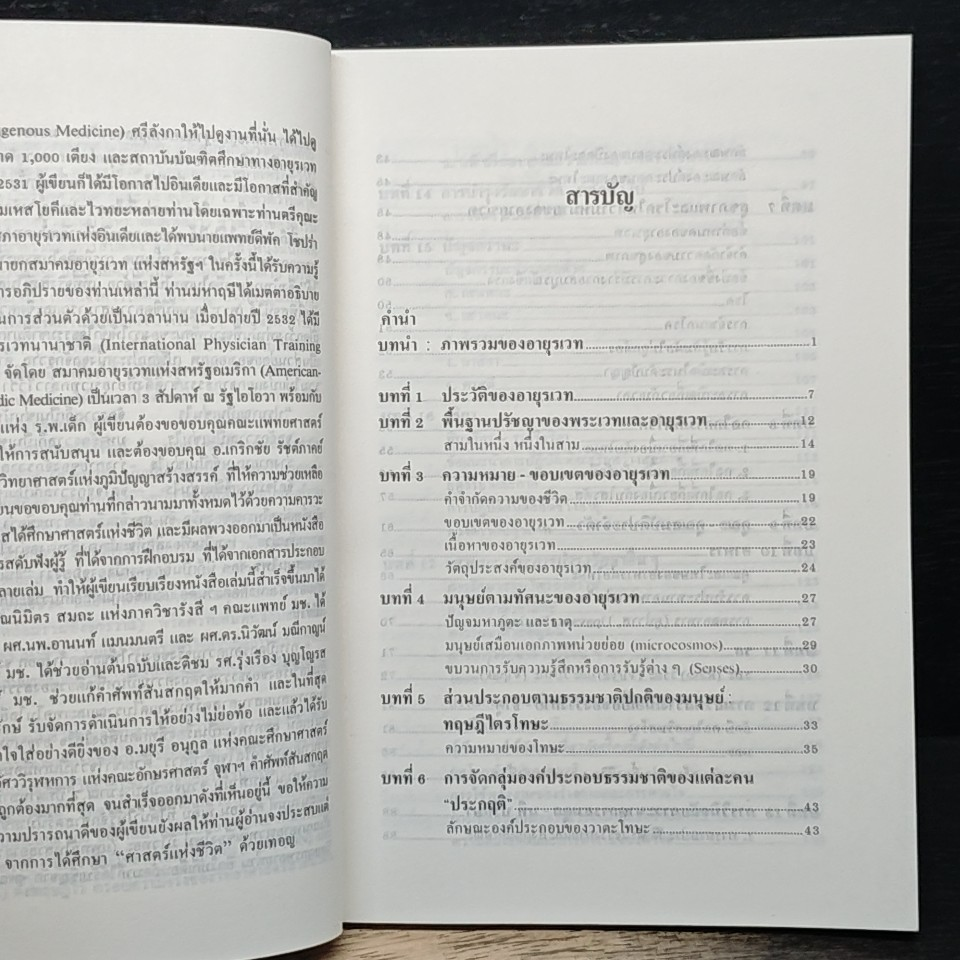 genous Medicine) ศรีลังกาให้ไปดูงานที่นั่น ได้ไปดู
าด 1,000 เตียง และสถาบันบัณฑิตศึกษาทางอายุรเวท
2531 ผู้เขียนก็ได้มีโอกาสไปอินเดียและมีโอกาสที่สำคัญ
มเหสโยคีและไวทยะหลายท่านโดยเฉพาะท่านตรีคุณะ
สภาอายุรเวทแห่งอินเดียและได้พบนายแพทย์ดีพัค โชปร่า
นายกสมาคมอายุรเวท แห่งสหรัฐฯ ในครั้งนี้ได้รับความรู้
การอภิปรายของท่านเหล่านี้ ท่านมหาฤษีได้เมตตาอธิบาย
นการส่วนตัวด้วยเป็นเวลานาน เมื่อปลายปี 2532 ได้มี
รเวทนานาชาติ (International Physician Training
จัดโดย สมาคมอายุรเวทแห่งสหรัฐอเมริกา (American-
dic Medicine) เป็นเวลา 3 สัปดาห์ ณ รัฐไอโอวา พร้อมกับ
แห่ง รุ.พ.เด็ก ผู้เขียนต้องขอขอบคุณคณะแพทยศาสตร์
ให้การสนับสนุน และต้องขอบคุณ อ.เกริกชัย รัชต์ภาคย์
วิทยาศาสตร์แห่งภูมิปัญญาสร้างสรรค์ ที่ให้ความช่วยเหลือ
ยนขอขอบคุณท่านที่กล่าวนามมาทั้งหมดไว้ด้วยความคารวะ
สได้ศึกษาศาสตร์แห่งชีวิต และมีผลพวงออกมาเป็นหนังสือ
รสดับฟังผู้รู้ ที่ได้จากการฝึกอบรม ที่ได้จากเอกสารประกอบ
ลายเล่ม ทำให้ผู้เขียนเรียบเรียงหนังสือเล่มนี้สำเร็จขึ้นมาได้
ณนิมิตร สมถะ แห่งภาควิชารังสี ฯ คณะแพทย์ มช. ได้
ผศ.นพ.อานนท์ แมนมนตรี และ ผศ.ดร.นิวัฒน์ มณีกาญน์
มช. ได้ช่วยอ่านต้นฉบับและติชม รศ.รุ่งเรือง บุญโญรส
มช. ช่วยแก้คำศัพท์สันสกฤตให้มากคำ และในที่สุด
รักษ์ รับจัดการดำเนินการให้อย่างไม่ย่อท้อ และแล้วได้รับ
าใจใส่อย่างดียิ่งของ อ.มยุรี อนุกูล แห่งคณะศึกษาศาสตร์
ัศววิรุฬหการ แห่งคณะอักษรศาสตร์ จุฬาฯ คำศัพท์สันสกฤต
ถูกต้องมากที่สุด จนสำเร็จออกมาดังที่เห็นอยู่นี้ ขอให้ความ
วามปรารถนาดีของผู้เขียนยังผลให้ท่านผู้อ่านจงประสบแต่
จากการได้ศึกษา “ศาสตร์แห่งชีวิต” ด้วยเทอญ
สารบัญ
คำนำ
บทนำ : ภาพรวมของอายุรเวท....................1
บทที่ 1 ประวัติของอายุรเวท....................7
บทที่ 2 พื้นฐานปรัชญาของพระเวทและอายุรเวท....................12
สามในหนึ่ง หนึ่งในสาม....................14
บทที่ 3 ความหมาย - ขอบเขตของอายุรเวท....................19
คำจำกัดความของชีวิต....................19
ขอบเขตของอายุรเวท....................22
เนื้อหาของอายุรเวท....................23
วัตถุประสงค์ของอายุรเวท....................24
บทที่ 4 มนุษย์ตามทัศนะของอายุรเวท....................27
ปัญจมหาภูตะ และธาตุ....................27
มนุษย์เสมือนเอกภาพหน่วยย่อย (microcosmos)....................29
ขบวนการรับความรู้สึกหรือการรับรู้ต่าง ๆ (Senses)....................30
บทที่ 5 ส่วนประกอบตามธรรมชาติปกติของมนุษย์ :
ทฤษฎีไตรโทษะ....................33
ความหมายของโทษะ....................35
บทที่ 6 การจัดกลุ่มองค์ประกอบธรรมชาติของแต่ละคน
“ประกฤติ”....................43
ลักษณะองค์ประกอบของวาตะโทษะ....................43